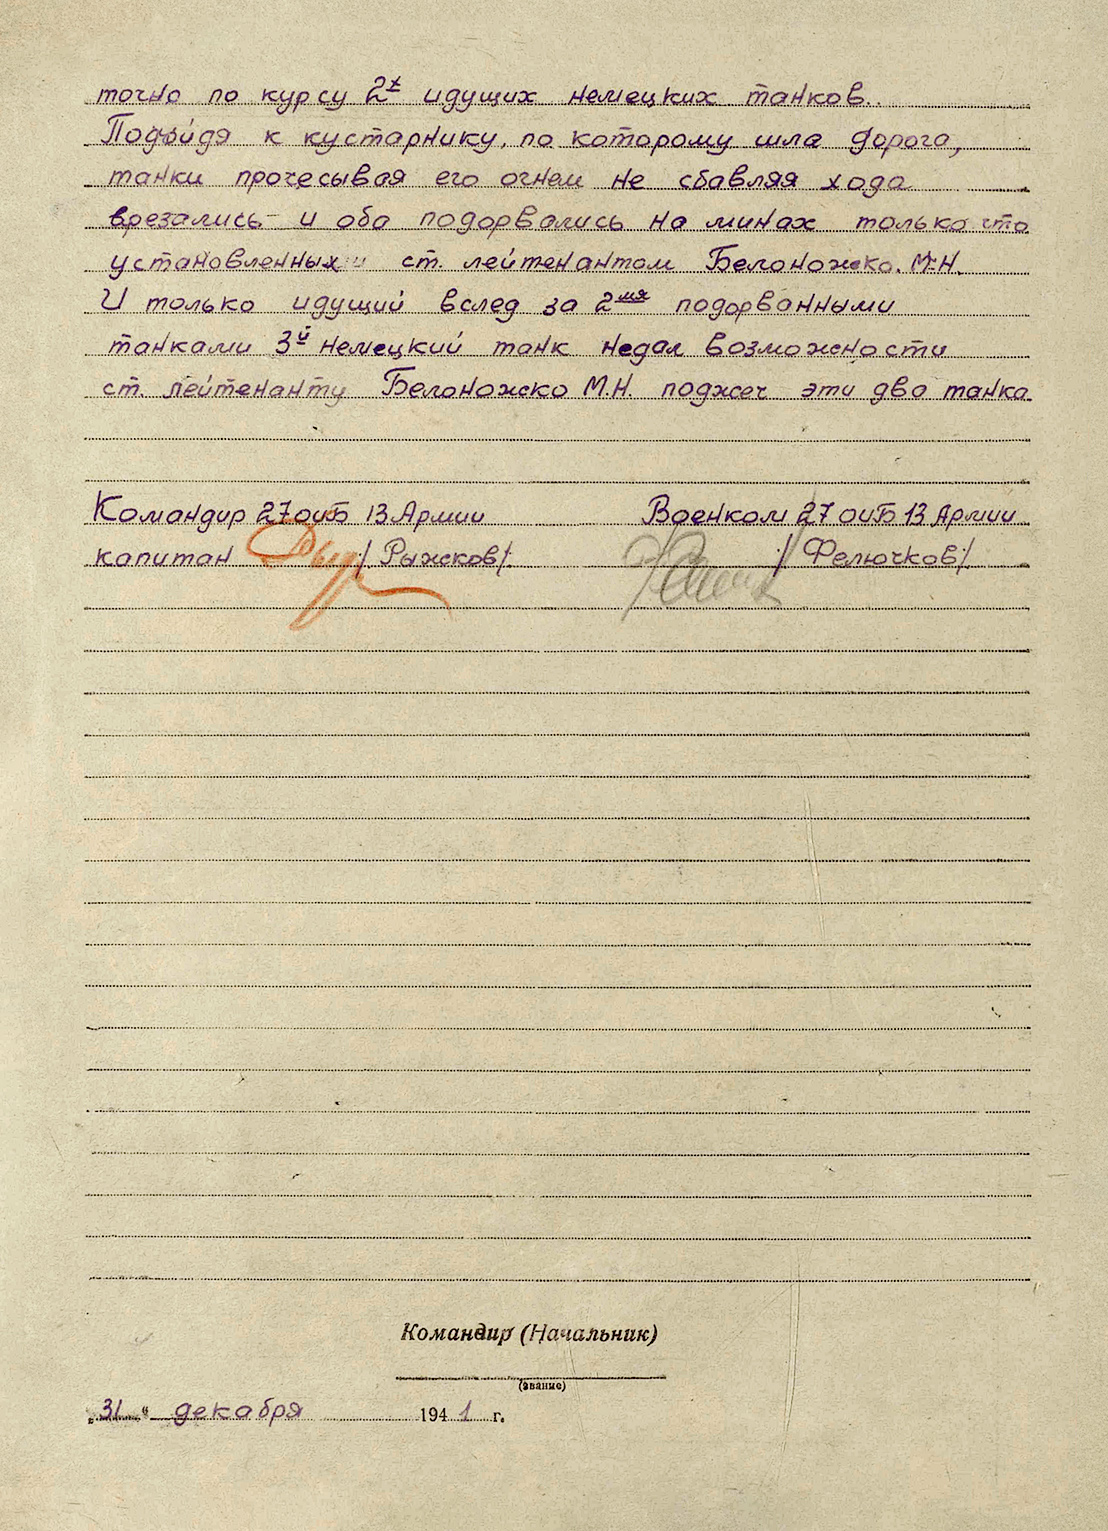 точно по курсу 2х идущих немецких танков.
Подъйдя к кустарнику, по которому шла дорога,
танки прочесывая его огнем не сбавляя хода
врезались и оба подорвались на минах только что
установленных ст. лейтенантом Белоножко. М.Н.
И только идущий вслед за 2мя подорванными
танками 3й немецкий танк недал возможности
ст. лейтенанту Белоножско М.Н. поджеч эти два танка.
Командир 27 оиБ 13 Армии Военком 27 оиБ 13 Армии
капитан /Рыжсков/. /Фелючков/.
Командир (Начальник)
(звание)
„31“ декабря 1941 г.